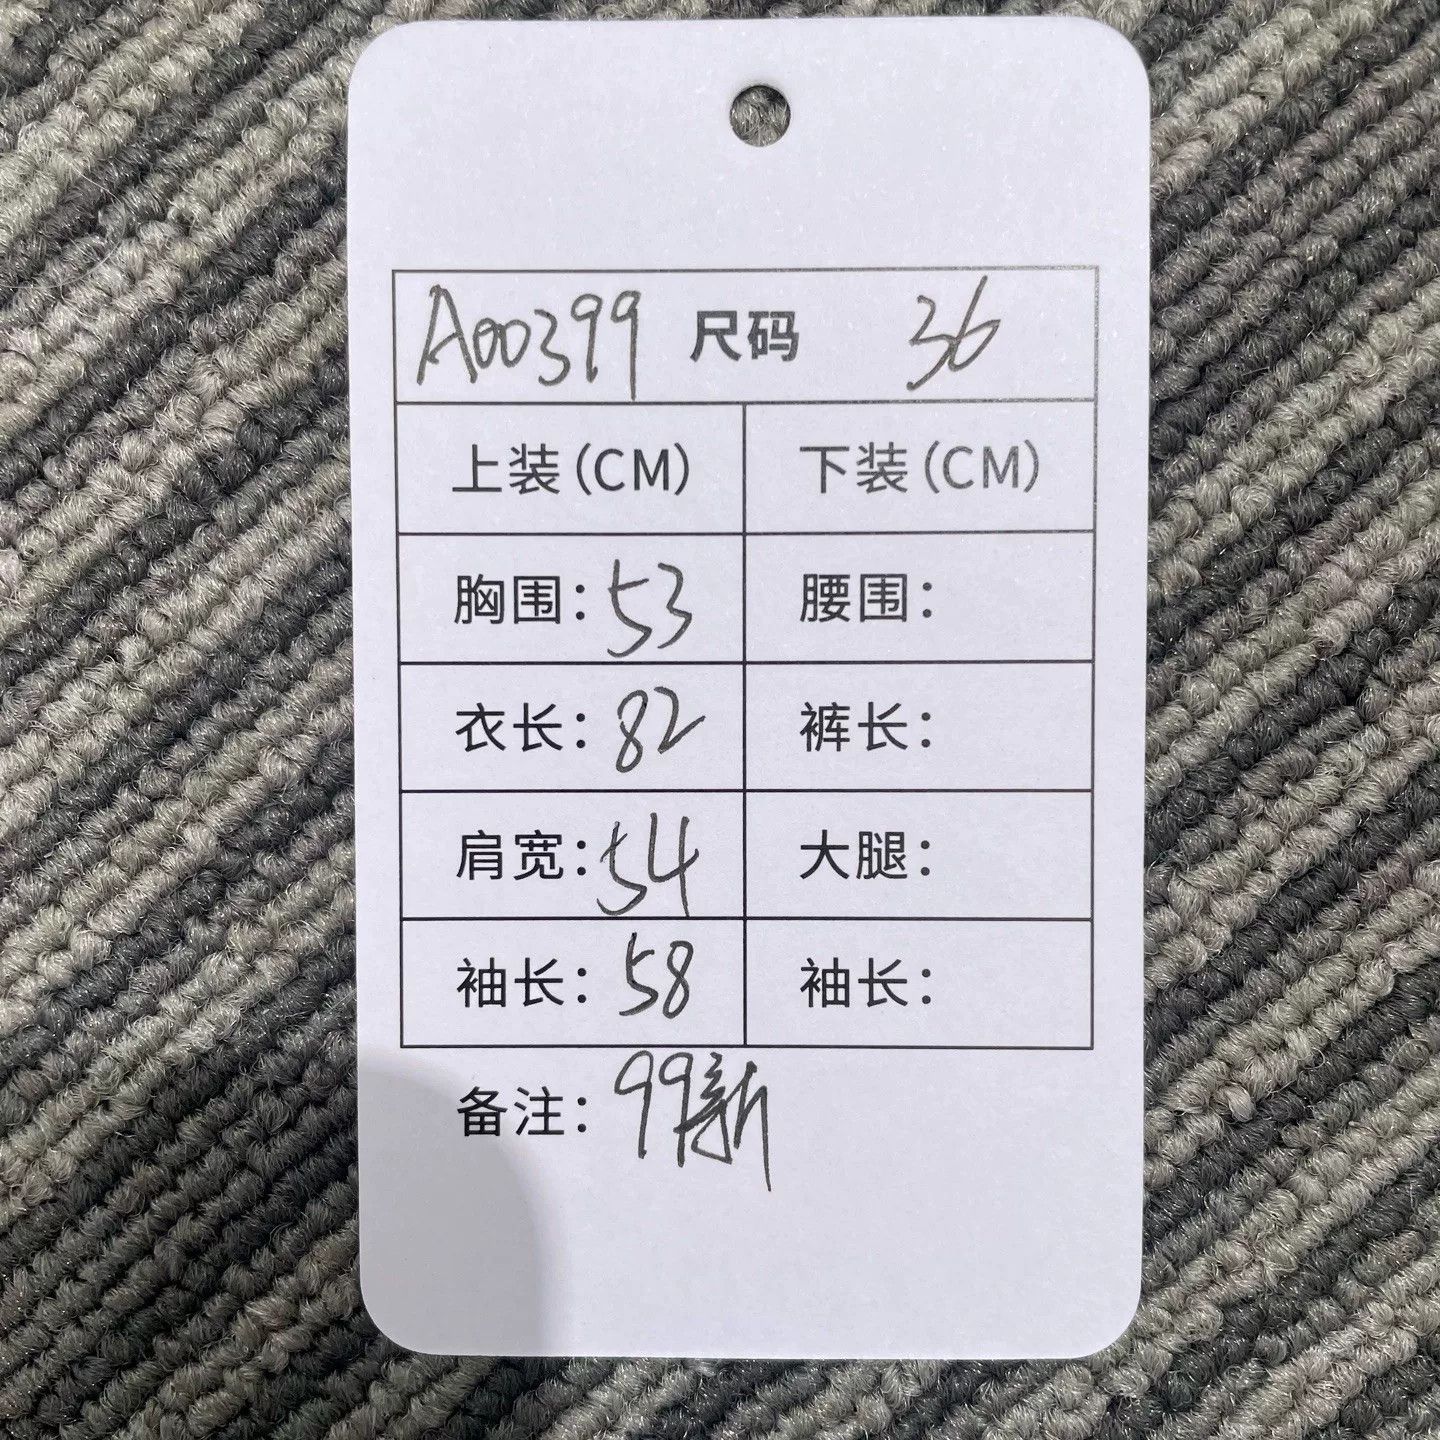 A00399 尺码 36
上装(CM) 下装(CM)
胸围：53 腰围：
衣长：82 裤长：
肩宽：54 大腿：
袖长：58 袖长：
备注：99新